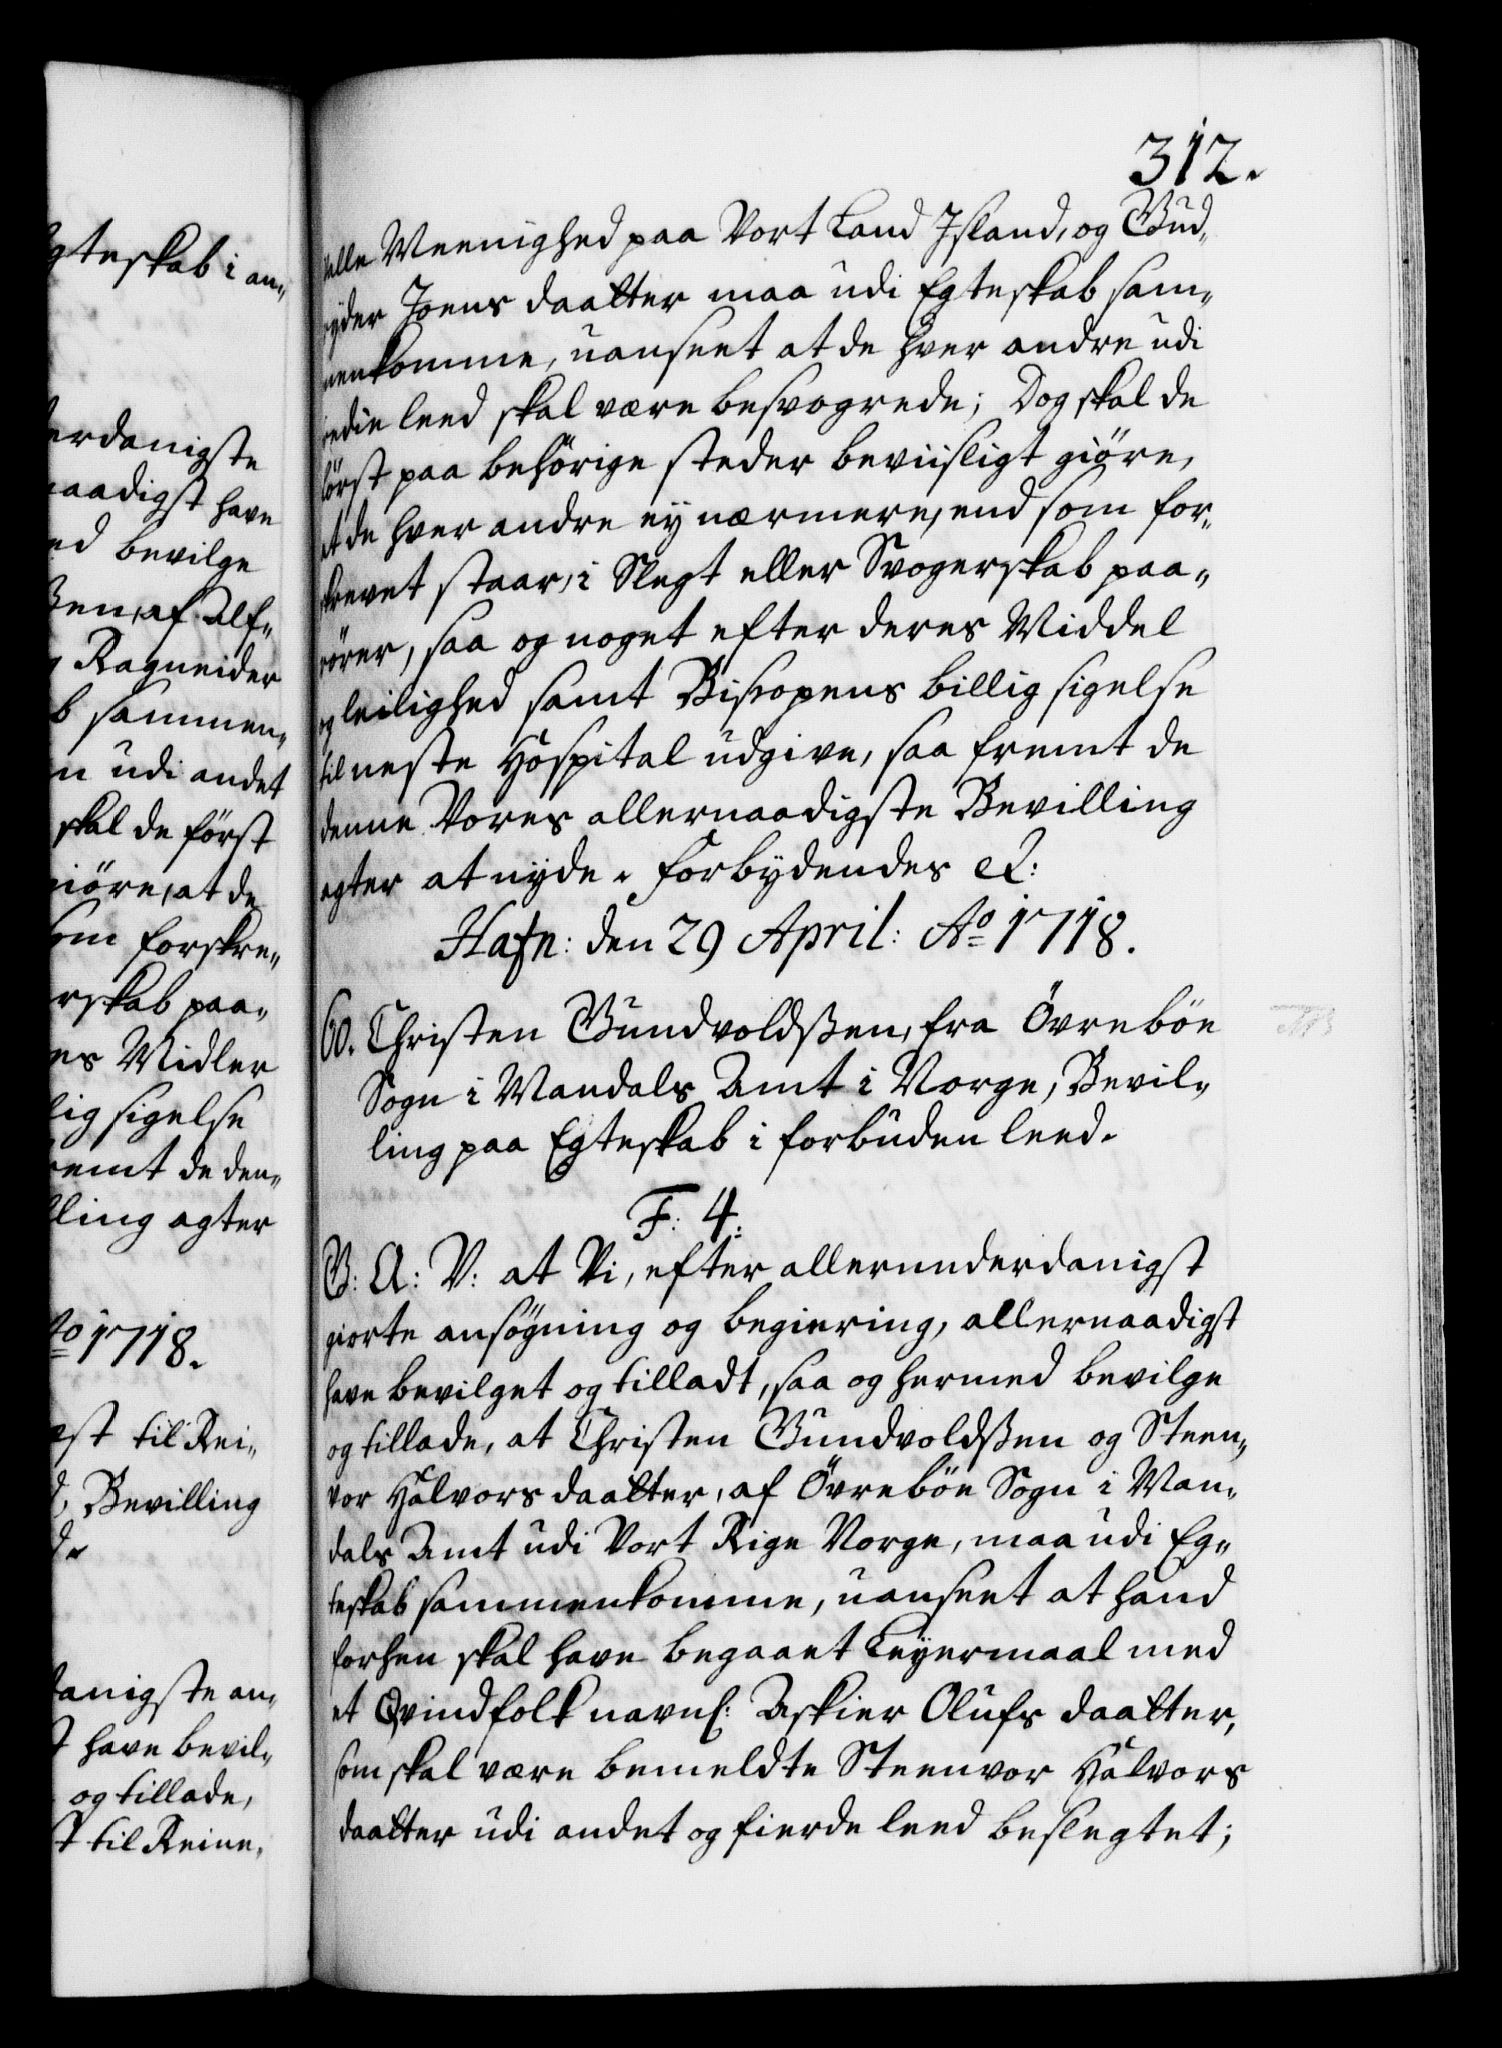 gteskab i an-
erdanigste
naadigst have
ed bevilge
ßen, af Alf-
Ragneider
b sammen-
n udi andet
skal de först
giöre, at de
som forskre-
rskab paa-
es Midler
lig sigelse
fremt de den-
lling agter
Ao 1718.
est til Rei-
Bevilling
danigste an-
t have bevil-
og tillade,
st til Reine-
312.
alle Meenighed paa Vort Land Jsland, og Gud-
ryder Joens daatter maa udi Egteskab sam-
menkomme, uanseet at de hver andre udi
tredie leed skal være besvogrede; Dog skal de
först paa behörige steder beviisligt giöre,
at de hver andre ey nærmere, end som for-
skrevet staar, i Slegt eller Svogerskab paa-
rörer, saa og noget efter deres Middel
og leilighed samt Biskopens billig sigelse
til neste Hospital udgive, saa fremt de
denne Vores allernaadigste Bevilling
agter at nyde. Forbydendes &:
Hafn: den 29 April: Ao 1718.
60. Christen Gundvoldßen, fra Övreböe
Sogn i Mandals Amt i Norge, Bevil-
ling paa Egteskab i forbuden leed.
F: 4.
G: A: V: at Vi, efter allerunderdanigst
giorte ansögning og begiering, allernaadigst
have bevilget og tilladt, saa og hermed bevilge
og tillade, at Christen Gundvoldßen og Steen-
vor Halvors daatter, af Övreböe Sogn i Man-
dals Amt udi Vort Rige Norge, maa udi Eg-
teskab sammenkomme, uanseet at hand
forhen skal have begaaet Leyermaal med
et Qvindfolk navnl: Askier Olufs daatter,
som skal være bemeldte Steenvor Halvors
daatter udi andet og fierde leed beslegtet;